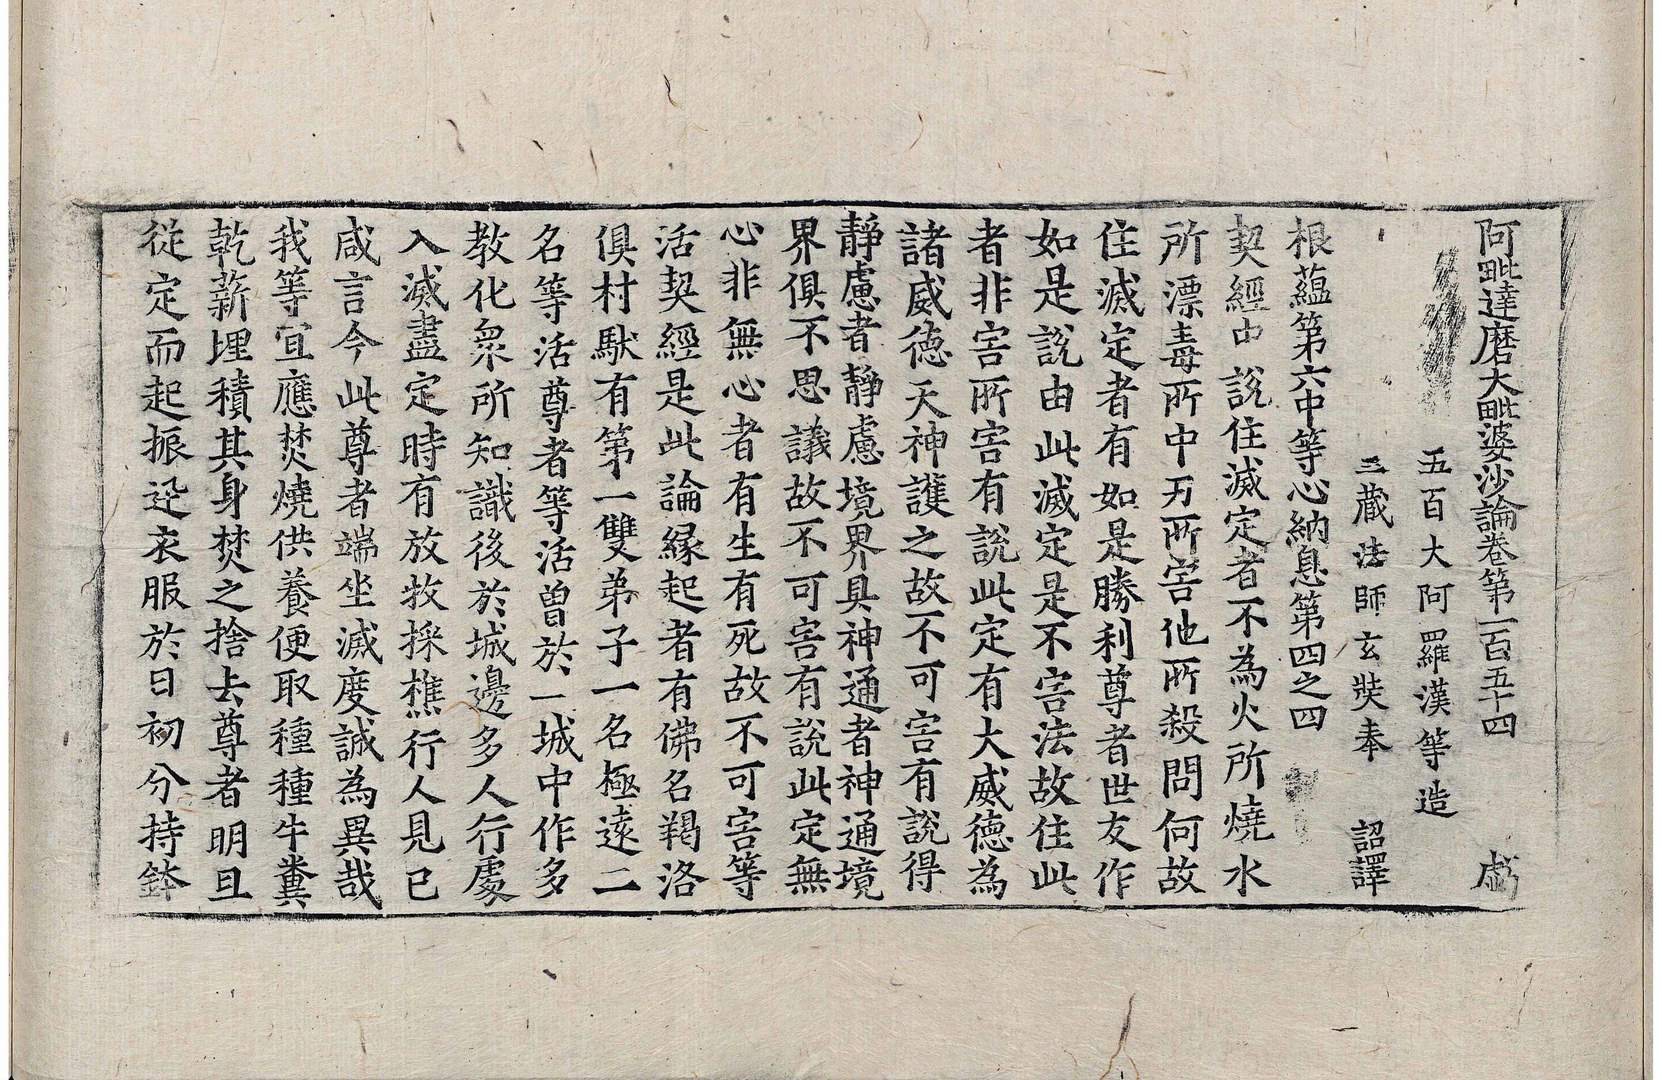 阿毗達磨大毗婆沙論卷第一百五十四 虧
五百大阿羅漢等造
三藏法師玄奘奉 詔譯
根蘊第六中等心納息第四之四
契經中說住滅定者不為火所燒水
所漂毒所中刃所害他所殺問何故
住滅定者有如是勝利尊者世友作
如是說由此滅定是不害法故住此
者非害所害有說此定有大威德為
諸威德天神護之故不可害有說得
靜慮者靜慮境界具神通者神通境
界俱不思議故不可害有說此定無
心非無心者有生有死故不可害等
活契經是此論緣起者有佛名羯洛
俱村馱有第一雙弟子一名極遠二
名等活尊者等活曾於一城中作多
教化衆所知識後於城邊多人行處
入滅盡定時有放牧採樵行人見已
咸言今此尊者端坐滅度誠為異哉
我等宜應焚燒供養便取種種牛糞
乾薪埋積其身焚之捨去尊者明旦
從定而起振迅衣服於日初分持鉢